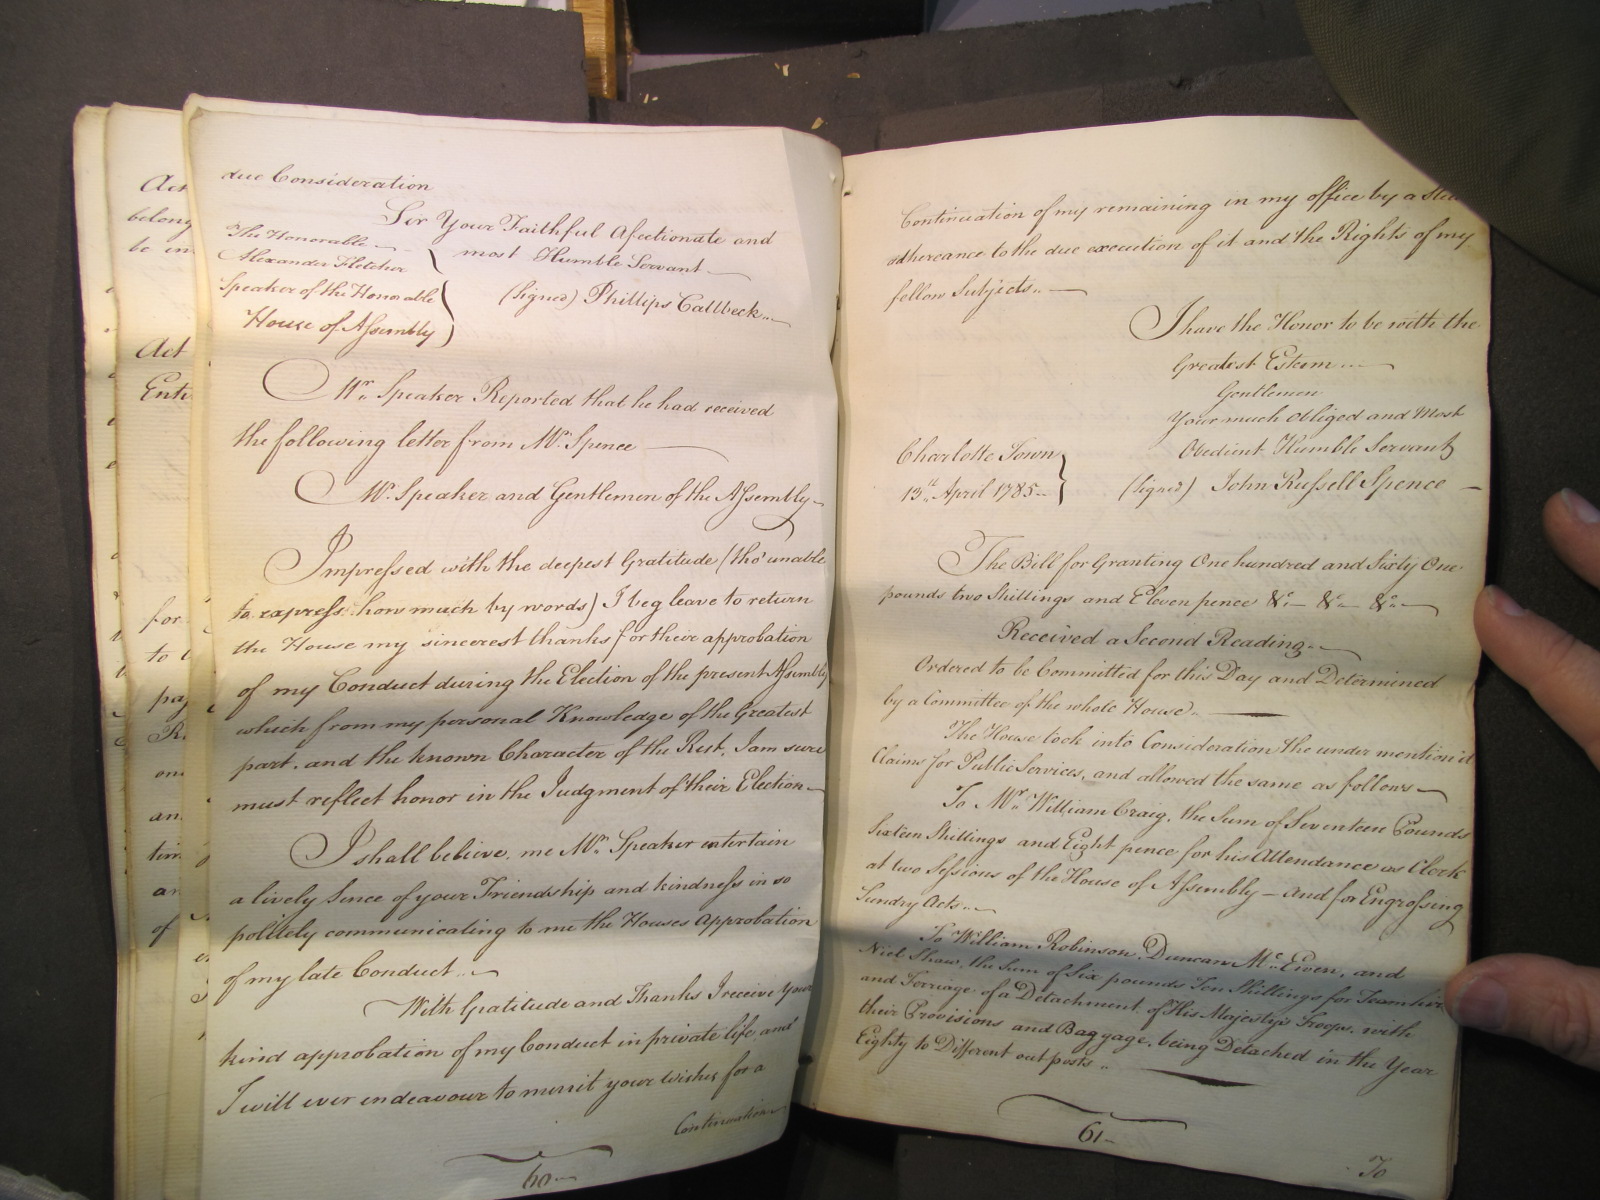 due Consideration
Sir Your Faithful Afectionate and
The Honorable
most Humble Servant
Alexander Fletcher
Speaker of the Honorable
(Signed) Phillips Callbeck
House of Assembly
Mr. Speaker Reported that he had received
the following letter from Mr. Spence
Mr. Speaker and Gentlemen of the Assembly
Impressed with the deepest Gratitude (tho' unable
to express how much by words) I beg leave to return
the House my sincerest thanks for their approbation
of my Conduct during the Election of the present Assembly
which from my personal Knowledge of the Greatest
part, and the known Character of the Rest, I am sure
must reflect honor in the Judgment of their Election
I shall believe, me Mr. Speaker entertain
a lively Sence of your Friendship and kindness in so
politely communicating to me the Houses Approbation
of my late Conduct
With Gratitude and Thanks I receive your
kind approbation of my Conduct in private life and
I will ever endeavour to merrit your wishes for a
Continuation
60
Continuation of my remaining in my office by a
adhereance to the due execution of it and the Rights of my
fellow Subjects
I have the Honor to be with the
Greatest Esteem
Gentlemen
Your much Obliged and Most
Obedient Humble Servant
Charlotte Town
13th April 1785
(Signed) John Russell Spence
The Bill for Granting One hundred and Sixty One
pounds two Shillings and Eleven pence &c &c &c
Received a Second Reading
Ordered to be Committed for this Day and Determined
by a Committee of the whole House
The House took into Consideration the under mention'd
Claims for Public Services, and allowed the same as follows
To Mr. William Craig, the Sum of Seventeen Pounds
Sixteen Shillings and Eight pence for his Attendance as Clerk
at two Sessions of the House of Assembly - and for Engrossing
Sundry Acts
To William Robinson, Duncan Mc. Ewen, and
Niel Shaw, the Sum of Six pounds Ten Shillings for
and Ferriage of a Detachment of His Majestys Troops, with
their Provisions and Baggage, being Detached in the Year
Eighty to Different outposts
61
To
Act
belong
Act
for
of